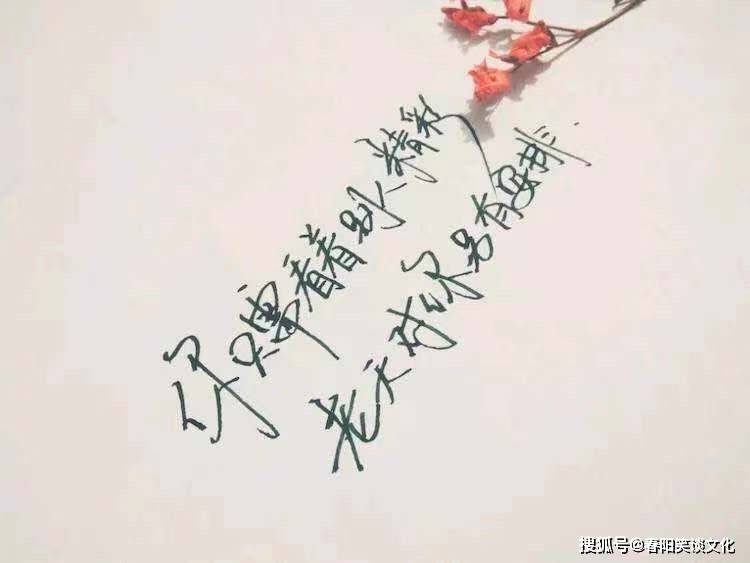 你只看着别人精彩
老天对你另有安排
搜狐号@春阳笑谈文化